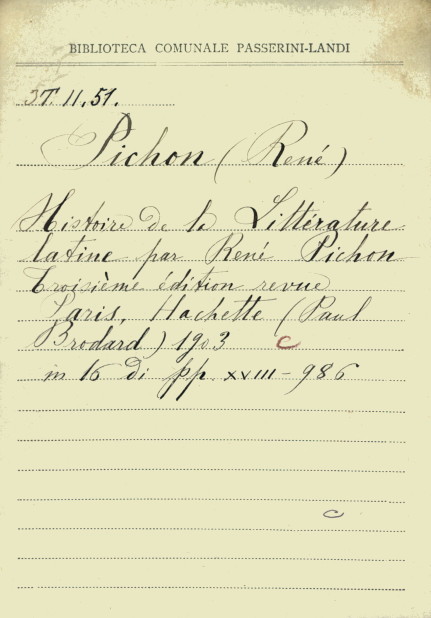 BIBLIOTECA COMUNALE PASSERINI-LANDI
3T. 11. 51.
Pichon (René)
Histoire de la Littérature
latine par René Pichon
Troisième édition revue
Paris, Hachette (Paul
Brodard) 1903 C
in 16 di pp. XVIII-986
C